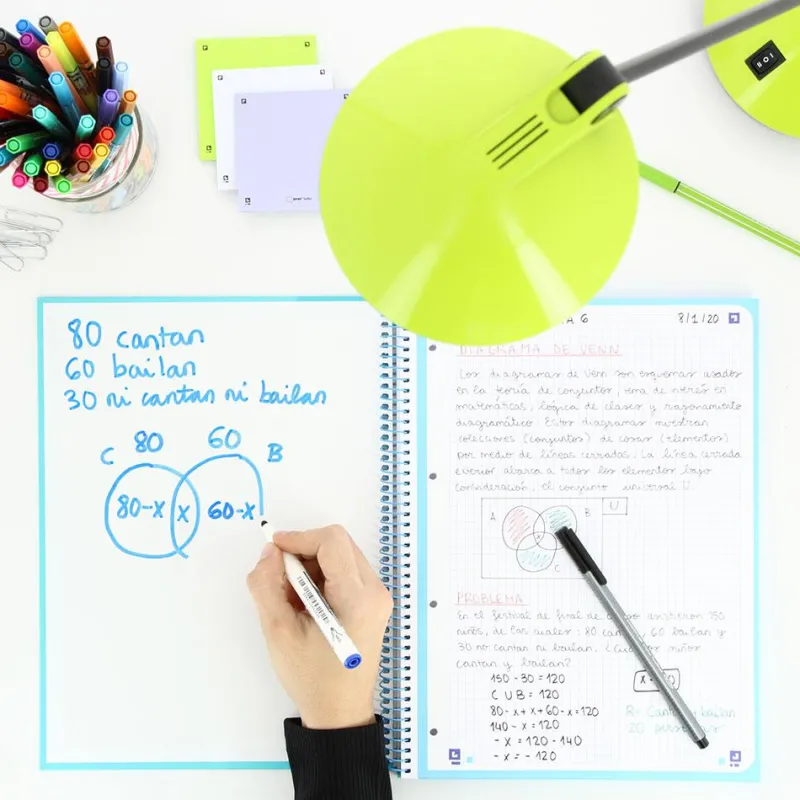 80 cantan
60 bailan
30 ni cantan ni bailan
80 60
C B
80-x x 60-x
A 6 8/1/20
DIAGRAMA DE VENN
Los diagramas de Venn son esquemas usados
en la teoría de conjuntos, tema de interés en
matemáticas, lógica de clases y razonamiento
diagramático. Estos diagramas muestran
colecciones (conjuntos) de cosas (elementos)
por medio de líneas cerradas. La línea cerrada
exterior abarca a todos los elementos bajo
consideración, el conjunto universal U.
U
A B
x
C
PROBLEMA
En el festival de final de curso asistieron 150
niños, de los cuales: 80 cantan, 60 bailan y
30 no cantan ni bailan. ¿Cuántos niños
cantan y bailan?
150 - 30 = 120
C U B = 120
80 - x + x + 60 - x = 120
140 - x = 120
- x = 120 - 140
- x = - 120
R= Cantan y bailan
20 personas